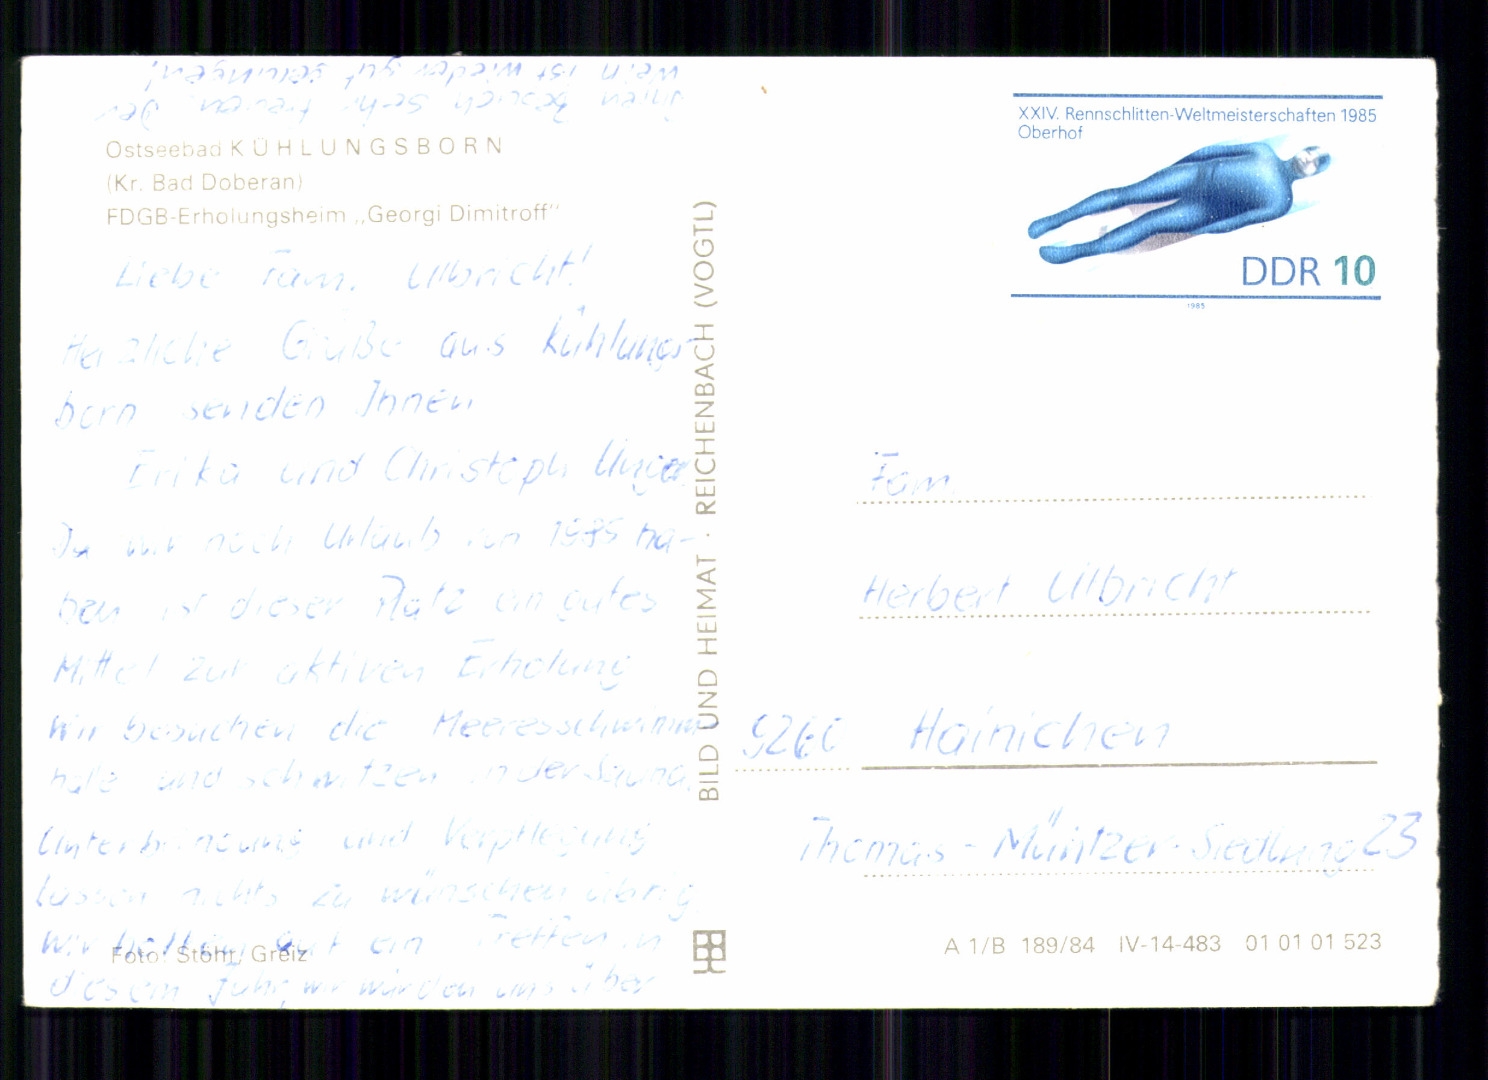 Ostseebad KÜHLUNGSBORN
(Kr. Bad Doberan)
FDGB-Erholungsheim „Georgi Dimitroff“
Liebe Fam. Ulbricht!
Herzliche Grüße aus Kühlungs-
born senden Ihnen
Erika und Christoph Unger
Da wir noch Urlaub von 1985 ha-
ben ist dieser Platz ein gutes
Mittel zur aktiven Erholung
Wir besuchen die Meeresschwimm
halle und schwitzen in der Sauna.
Unterbringung und Verpflegung
lassen nichts zu wünschen übrig
Wir hoffen auf ein Treffen in
diesem Jahr, wir würden uns über
Ihren Besuch sehr freuen. Der
Wein ist wieder gut gelungen!
Foto: Stöhr, Greiz
BILD UND HEIMAT · REICHENBACH (VOGTL)
XXIV. Rennschlitten-Weltmeisterschaften 1985
Oberhof
DDR 10
1985
Fam.
Herbert Ulbricht
9260 Hainichen
Thomas-Müntzer-Siedlung 23
A 1/B 189/84 IV-14-483 01 01 01 523